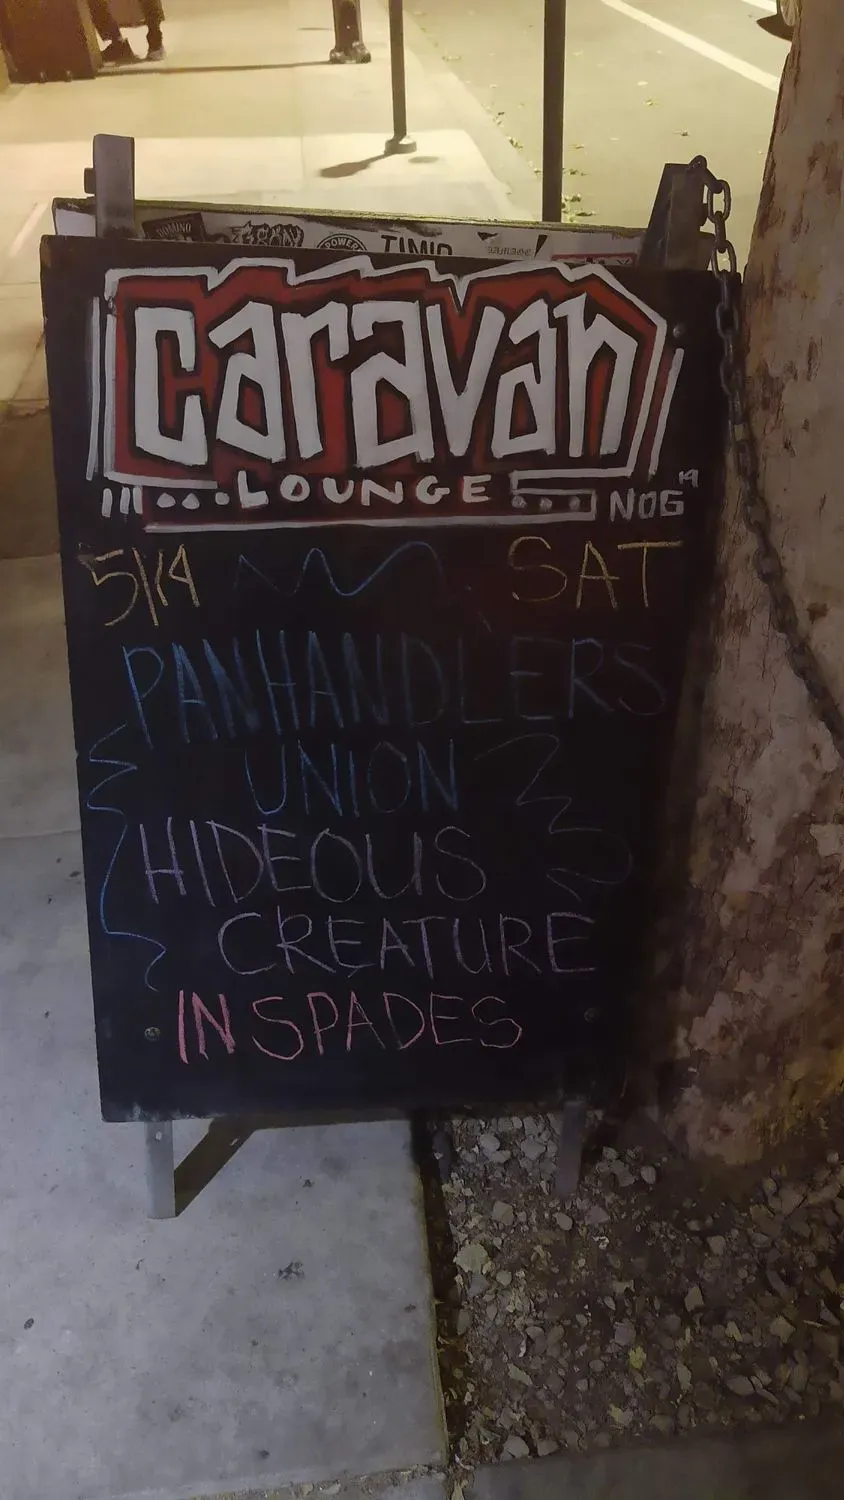 DOMINO
POWER
TIMIO
caravan
LOUNGE
NOG 14
5/14 SAT
PANHANDLERS
UNION
HIDEOUS
CREATURE
IN SPADES